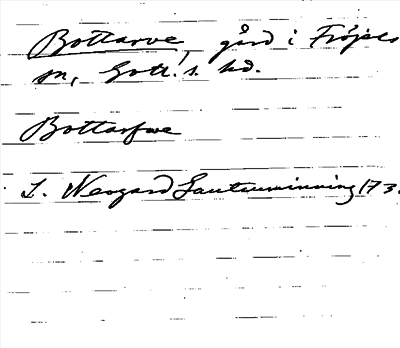 Bottarve, gård i Fröjels
sn, Gotl. s. hd.
Bottarfwe
L. Neogard Gautauminning 173